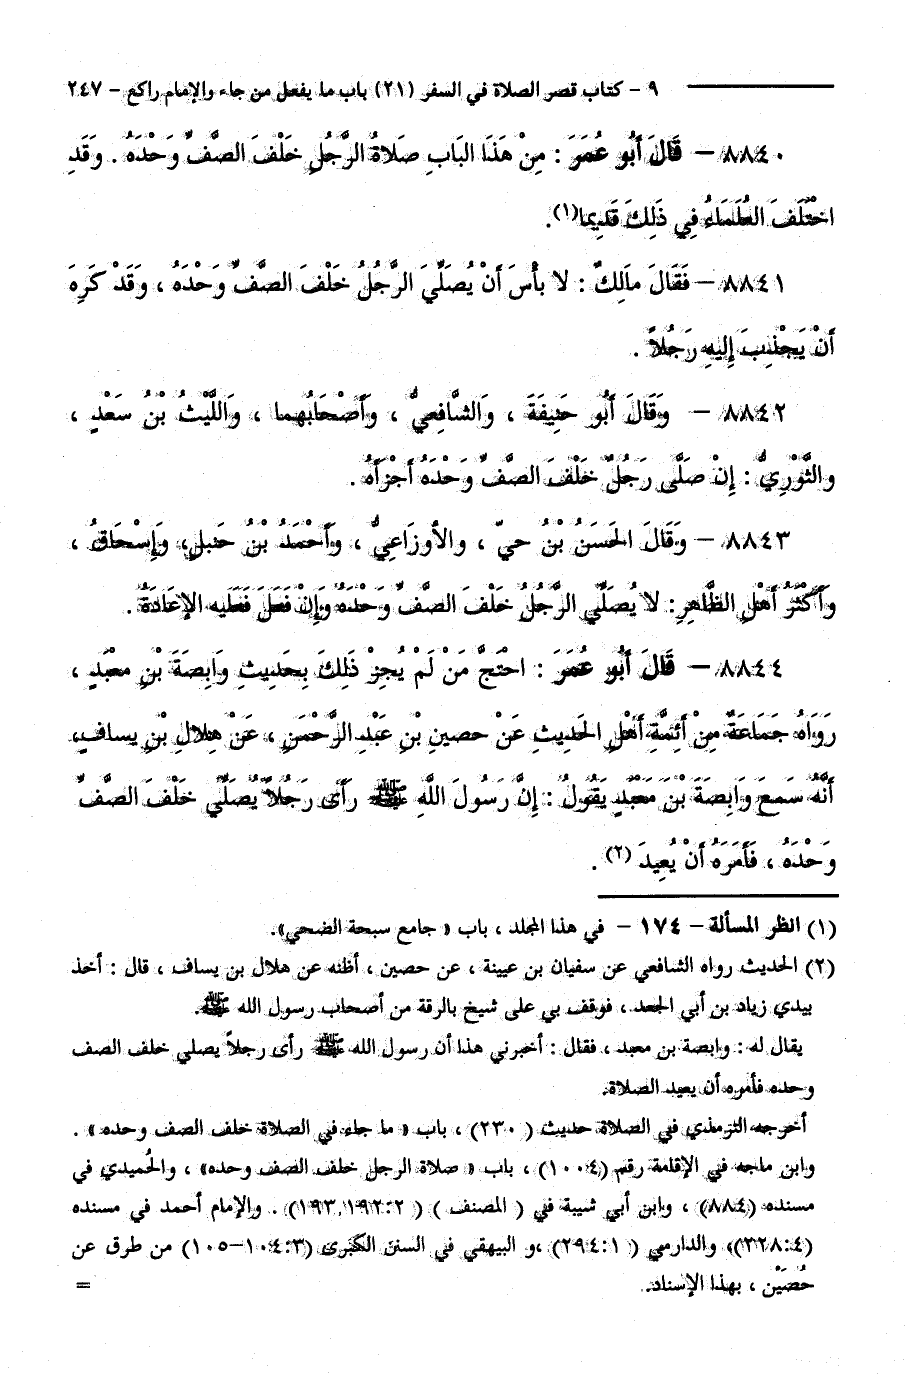 ٩ - كتاب قصر الصلاة في السفر (٢١) باب ما يفعل من جاء والإمام راكع - ٢٤٧
٨٨٤٠ - قَالَ أَبُو عُمَرَ : مِنْ هَذَا البَابِ صَلاةُ الرَّجُلِ خَلْفَ الصَّفِّ وَحْدَهُ . وَقَدِ
اخْتَلَفَ العُلَمَاءُ فِي ذَلِكَ قَدِيمًا(١).
٨٨٤١ - فَقَالَ مَالِكٌ : لا بأْسَ أَنْ يُصَلِّيَ الرَّجُلُ خَلْفَ الصَّفِّ وَحْدَهُ ، وَقَدْ كَرِهَ
أَنْ يَجْذِبَ إِلَيهِ رَجُلاً .
٨٨٤٢ - وَقَالَ أَبُو حَنِيفَةَ ، وَالشَّافِعِيُّ ، وَأَصْحَابُهُما ، وَاللَّيْثُ بْنُ سَعْدٍ ،
والثَّوْرِيُّ : إِنْ صَلَّى رَجُلٌ خَلْفَ الصَّفِّ وَحْدَهُ أَجْزَأَهُ .
٨٨٤٣ - وَقَالَ الحَسَنُ بْنُ حيّ ، والأوزَاعِيُّ ، وأَحْمَدُ بْنُ حَنبلٍ، وَإِسْحَاقُ ،
وَأَكْثَرُ أَهْلِ الظَّاهِرِ: لا يُصَلِّي الرَّجُلُ خَلْفَ الصَّفِّ وَحْدَهُ وَإِنْ فَعَلَ فَعَليه الإعَادَةُ .
٨٨٤٤ - قَالَ أَبُو عُمَرَ : احْتَجَّ مَنْ لَمْ يُجِزْ ذَلِكَ بِحَدِيثِ وَابِصَةَ بْنِ مَعْبَدٍ ،
رَوَاهُ جَمَاعَةٌ مِنْ أَئِمَّةِ أَهْلِ الحَدِيثِ عَنْ حصينِ بْنِ عَبْدِ الرَّحْمَنِ ، عَنْ هِلالِ بْنِ يسافٍ،
أَنَّهُ سَمعَ وَابِصَةَ بْنَ مَعْبَدٍ يَقُولُ : إِنَّ رَسُولَ اللَّهِ ﷺ رَأَى رَجُلاً يُصَلِّي خَلْفَ الصَّفِّ
وَحْدَهُ ، فَأَمَرَهُ أَنْ يُعِيدَ (٢) .
(١) انظر المسألة - ١٧٤ - في هذا المجلد ، باب « جامع سبحة الضحي».
(٢) الحديث رواه الشافعي عن سفيان بن عيينة ، عن حصين ، أظنه عن هلال بن يساف ، قال : أخذ
بيدي زياد بن أبي الجعد ، فوقف بي على شيخ بالرقة من أصحاب رسول الله ﷺ.
يقال له : وابصة بن معبد ، فقال : أخبرني هذا أن رسول الله ﷺ رأى رجلاً يصلي خلف الصف
وحده فأمره أن يعيد الصلاة.
أخرجه الترمذي في الصلاة حديث (٢٣٠) ، باب « ما جاء في الصلاة خلف الصف وحده» .
وابن ماجه في الإقامة رقم (١٠٠٤) ، باب « صلاة الرجل خلف الصف وحده» ، والحُميدي في
مسنده (٨٨٤) ، وابن أبي شيبة في ( المصنف ) ( ١٩٢:٢، ١٩٣) . والإمام أحمد في مسنده
(٣٢٨:٤)، والدارمي ( ٢٩٤:١) ،و البيهقي في السنن الكبرى (١٠٤:٣-١٠٥) من طرق عن
حُصَيْن ، بهذا الإسناد.
=